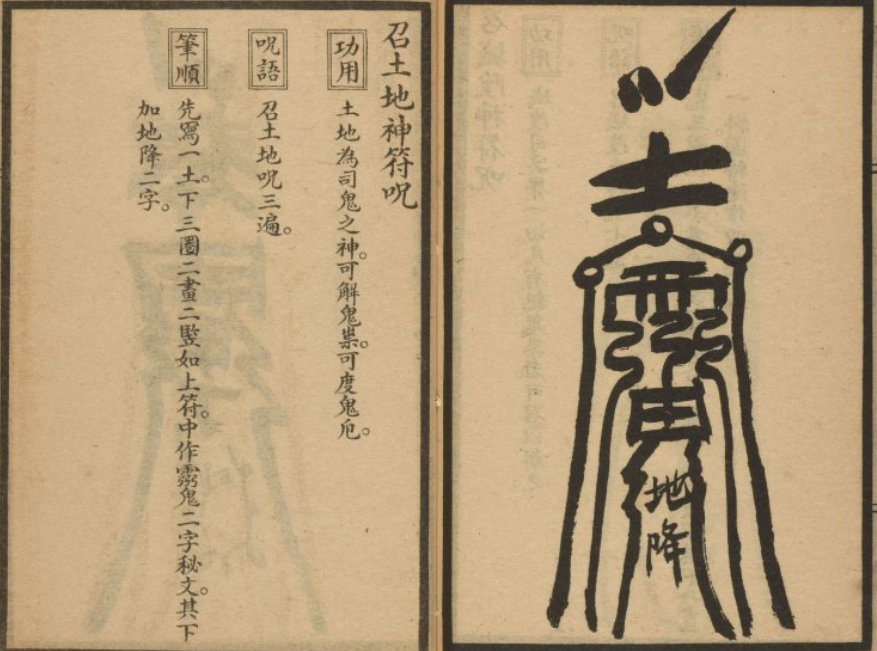 土
地降
召土地神符呪
功用 土地為司鬼之神。可解鬼祟。可度鬼厄。
呪語 召土地呪三遍。
筆順 先寫一土。下三圈二畫二竪如上符。中作靈鬼二字秘文。其下
加地降二字。